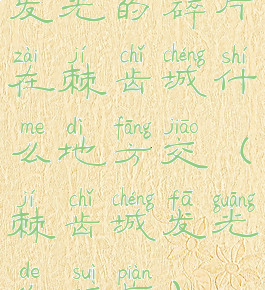 发光的碎片
zài jí chǐ chéng shí
在棘齿城什
me dì fāng jiāo
么地方交（
jí chǐ chéng fā guāng
棘齿城发光
de suì piàn